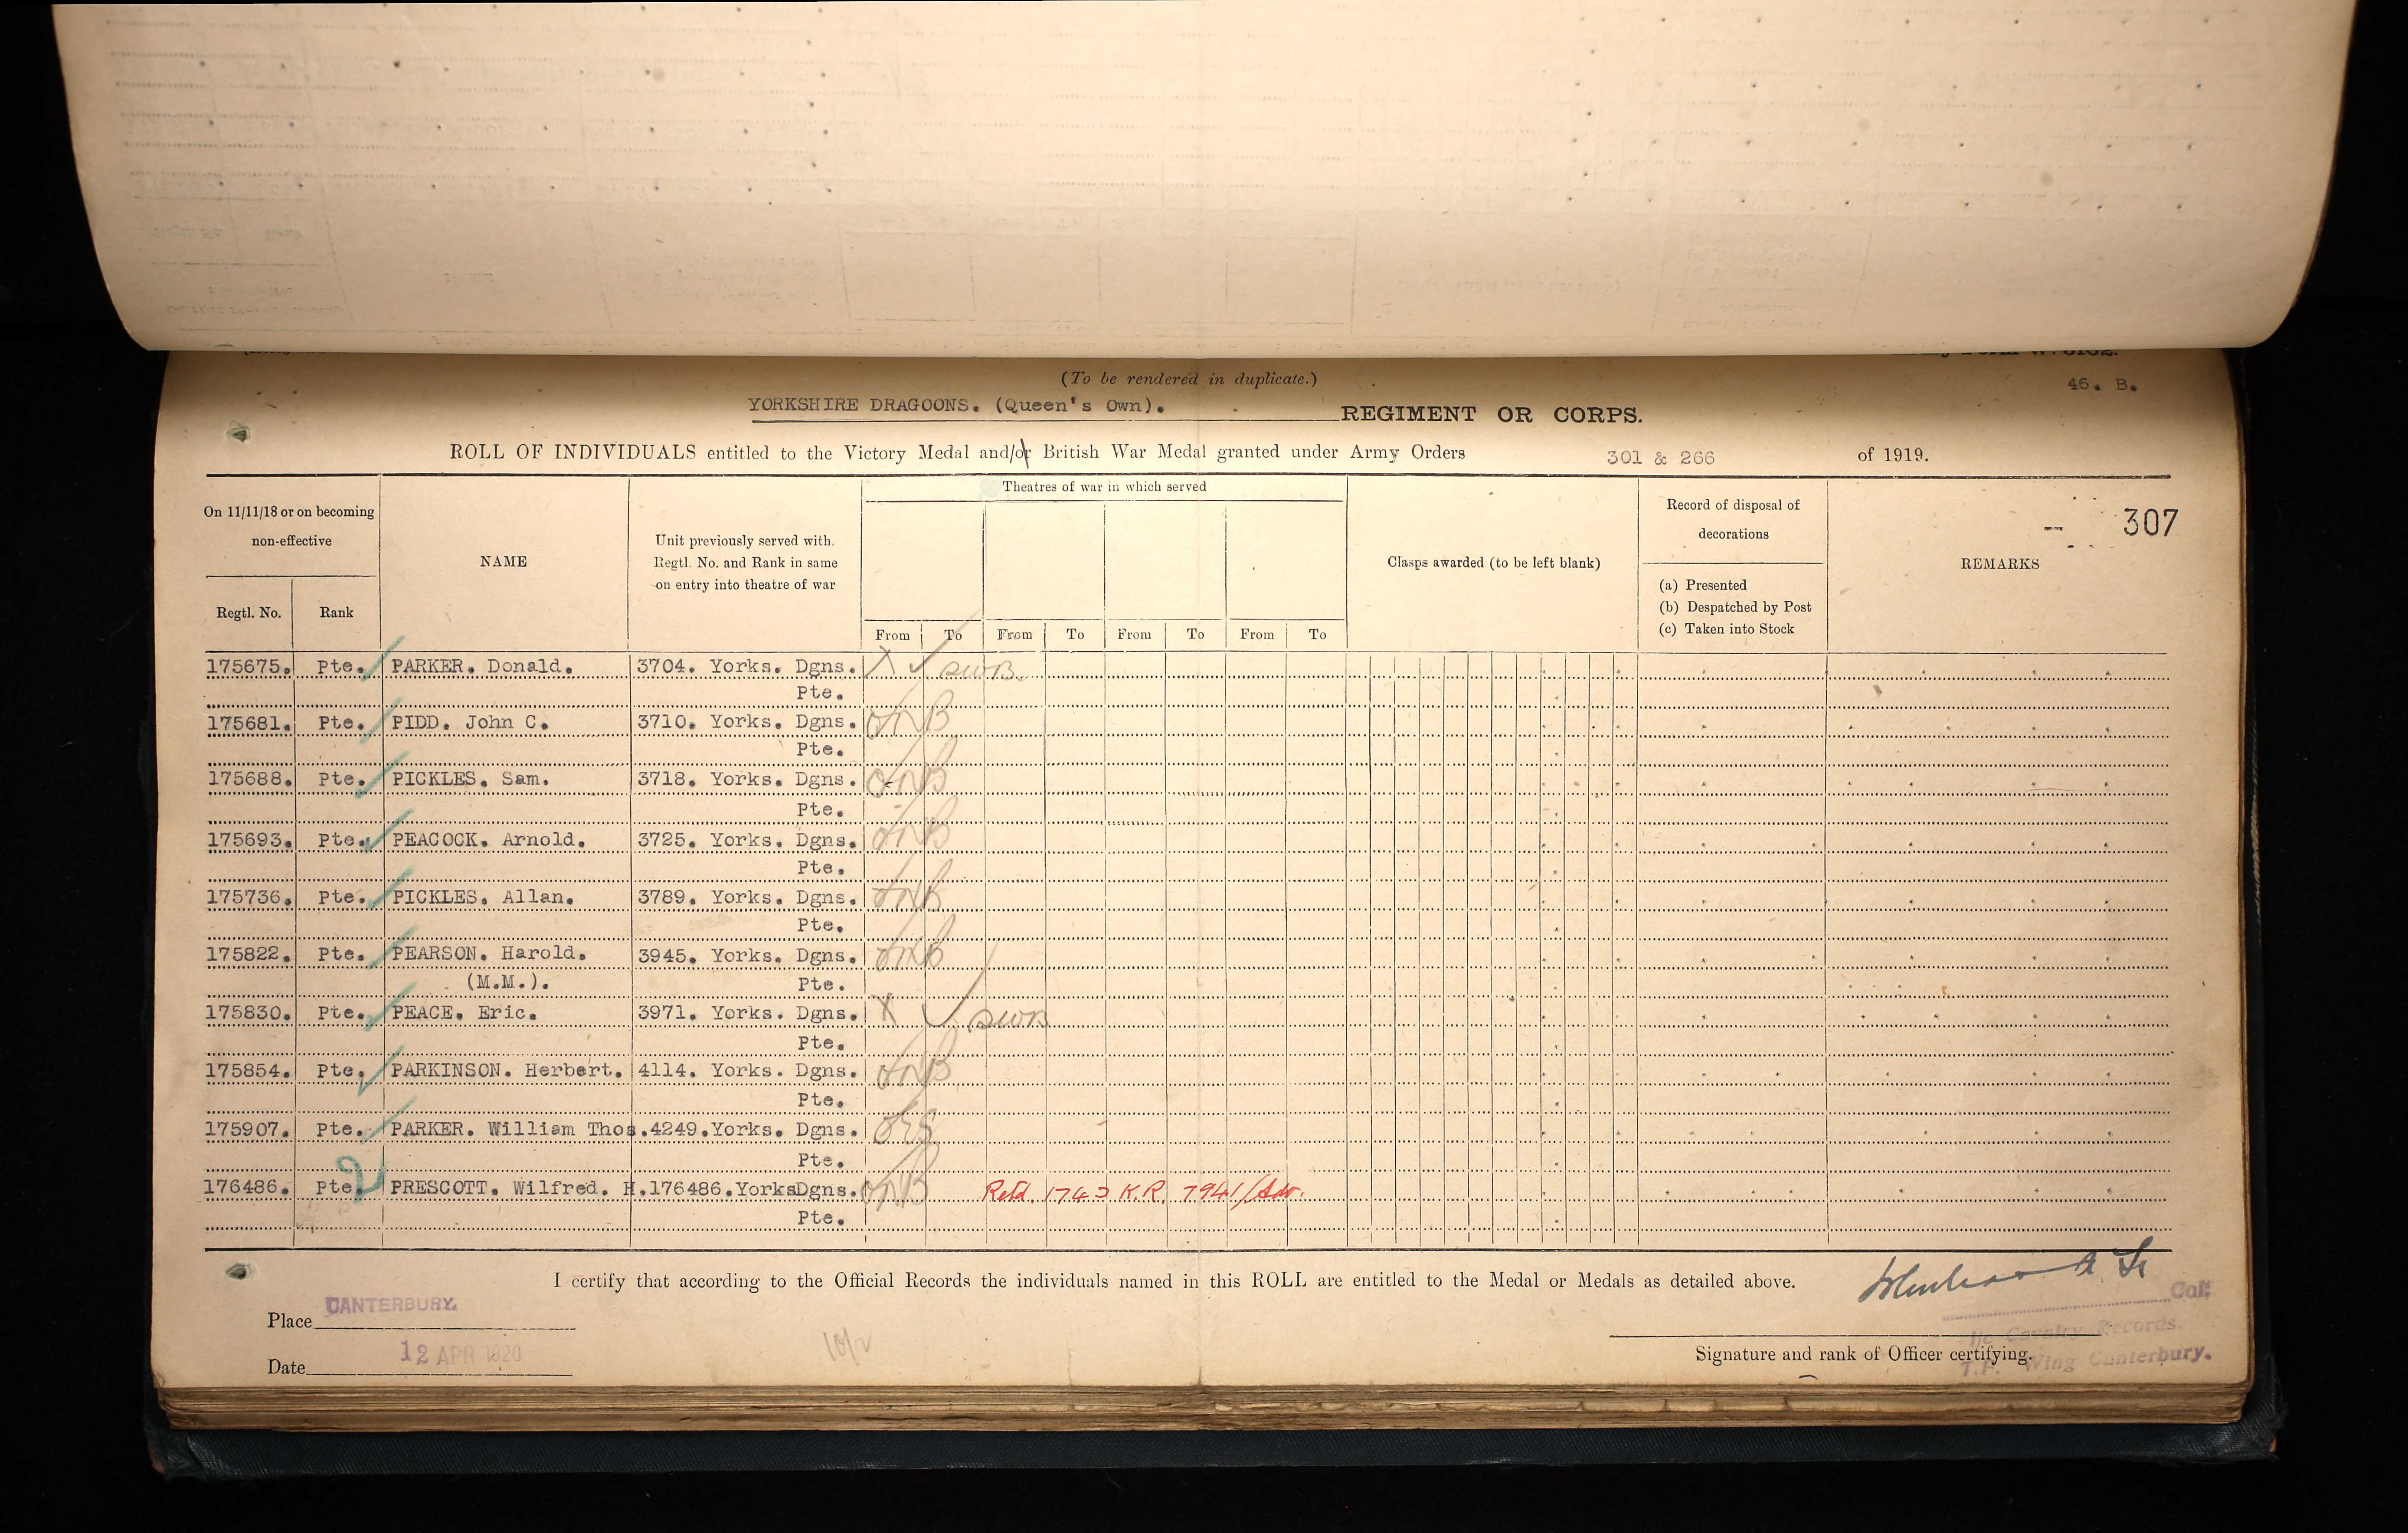 (To be rendered in duplicate.)
46. B.
YORKSHIRE DRAGOONS. (Queen's Own). REGIMENT OR CORPS.
ROLL OF INDIVIDUALS entitled to the Victory Medal and/or British War Medal granted under Army Orders 301 & 266 of 1919.
Theatres of war in which served
On 11/11/18 or on becoming non-effective
NAME
Unit previously served with. Regtl. No. and Rank in same on entry into theatre of war
Clasps awarded (to be left blank)
Record of disposal of decorations
(a) Presented
(b) Despatched by Post
(c) Taken into Stock
REMARKS
307
Regtl. No. Rank From To From To From To From To
175675. Pte. PARKER. Donald. 3704. Yorks. Dgns. X SWB.
Pte.
175681. Pte. PIDD. John C. 3710. Yorks. Dgns.
Pte.
175688. Pte. PICKLES. Sam. 3718. Yorks. Dgns.
Pte.
175693. Pte. PEACOCK. Arnold. 3725. Yorks. Dgns.
Pte.
175736. Pte. PICKLES. Allan. 3789. Yorks. Dgns.
Pte.
175822. Pte. PEARSON. Harold. 3945. Yorks. Dgns.
(M.M.). Pte.
175830. Pte. PEACE. Eric. 3971. Yorks. Dgns. X SWB
Pte.
175854. Pte. PARKINSON. Herbert. 4114. Yorks. Dgns.
Pte.
175907. Pte. PARKER. William Thos. 4249. Yorks. Dgns.
Pte.
176486. Pte. PRESCOTT. Wilfred. H. 176486. Yorks Dgns. Retd. 1743 K.R. 7941/Adv.
Pte.
I certify that according to the Official Records the individuals named in this ROLL are entitled to the Medal or Medals as detailed above.
Place CANTERBURY.
Col:
i/c Cavalry Records.
Date 12 APR 1920
Signature and rank of Officer certifying.
T.F. Wing Canterbury.